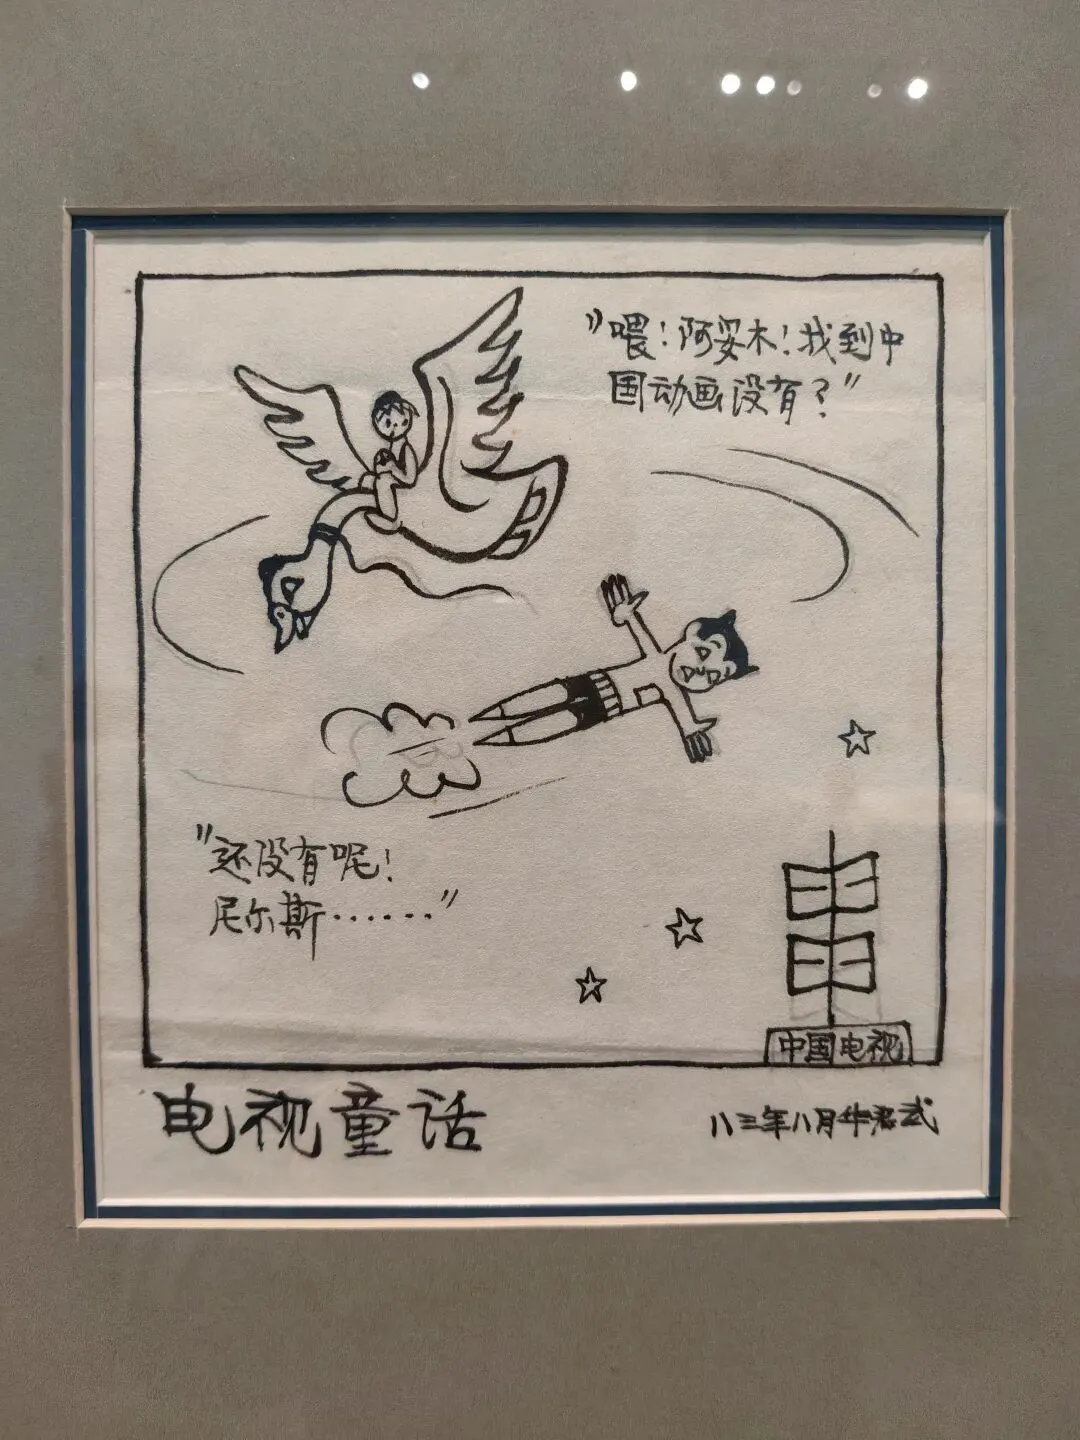 "喂！阿安木！找到中
国动画没有？"
"还没有呢！
尼尔斯······"
中国电视
电视童话
八三年八月华君武